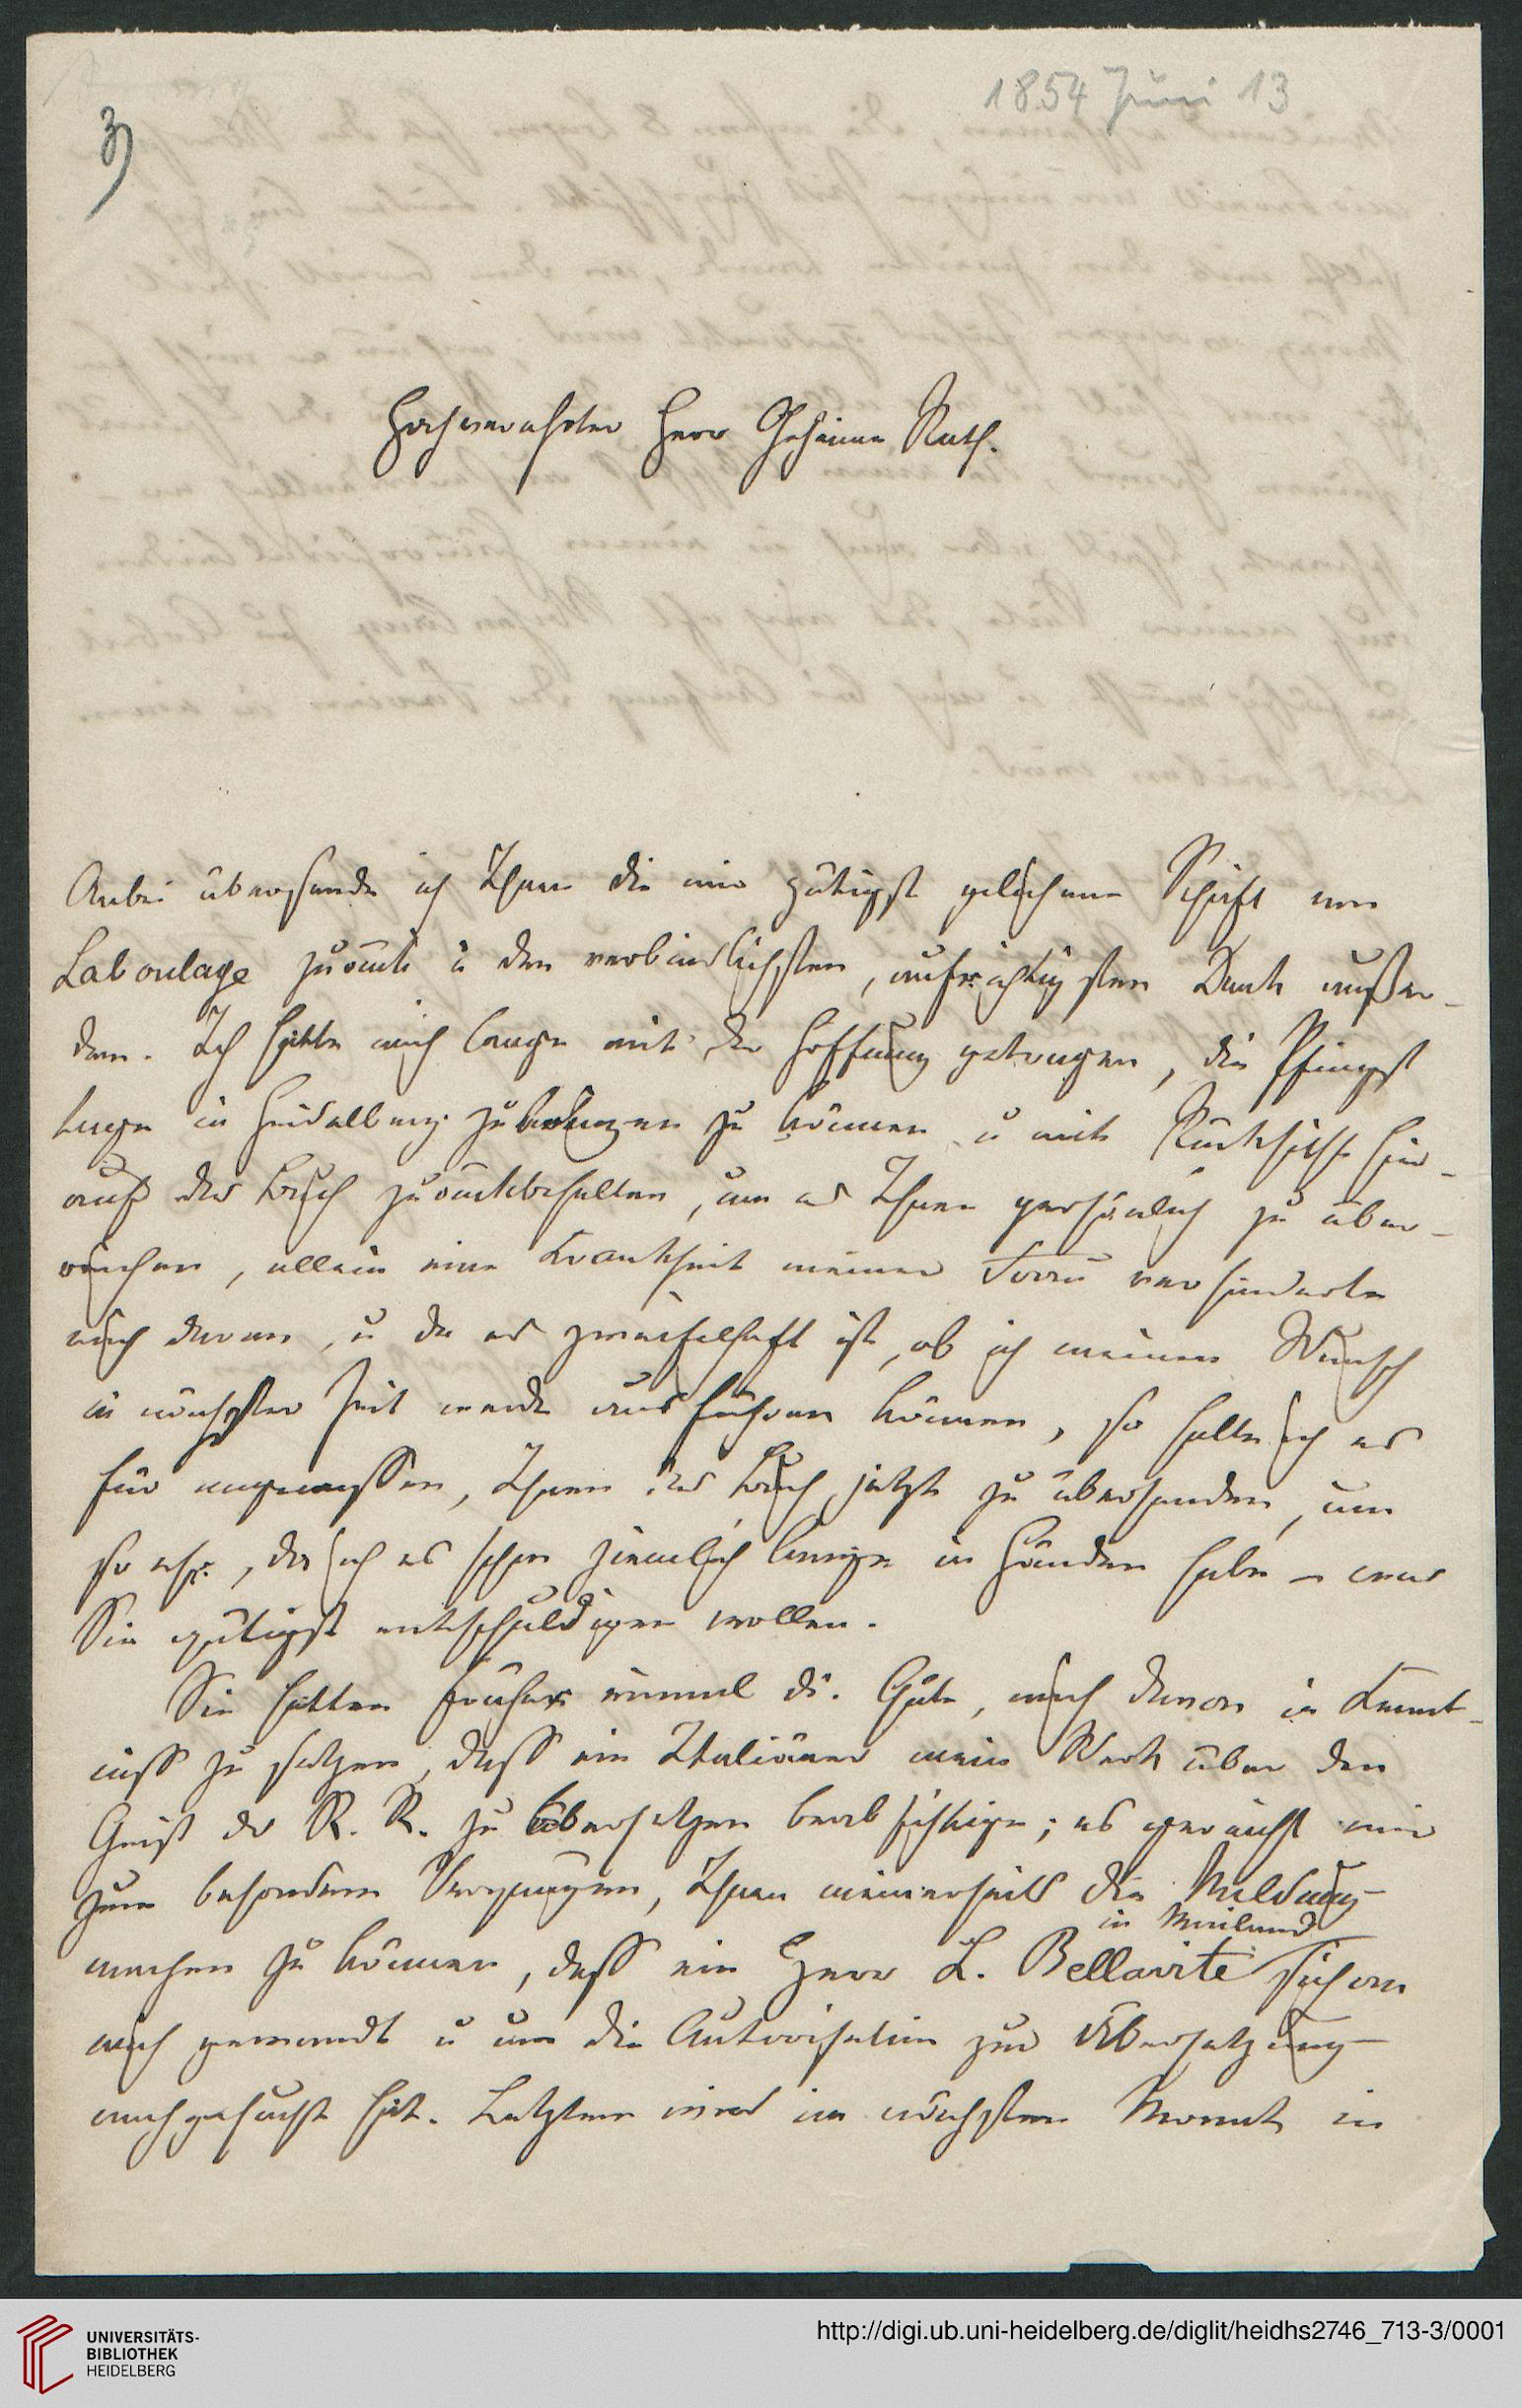 1854 Juni 13
3)
Hochverehrter Herr Geheime Rath.
Anbei übersende ich Ihnen die mir gütigst geliehene Schrift von
Laboulage zurück u den verbindlichsten, aufrichtigsten Dank außer-
dem. Ich hatte mich lange mit der Hoffnung getragen, die Pfingst
tage in Heidelberg zubringen zu können u mit Rücksicht hier-
auf das Buch zurückbehalten, um es Ihnen persönlich zu über-
reichen, allein eine Krankheit meiner Frau verhinderte
mich daran, u da es zweifelhaft ist, ob ich meinen Wunsch
in nächster Zeit werde ausführen können, so halte ich es
für angemessen, Ihnen das Buch jetzt zu übersenden, um
so mehr, da ich es schon ziemlich lange in Händen habe – was
Sie gütigst entschuldigen wollen.
Sie hatten früher einmal die Güte, mich davon in Kennt-
niß zu setzen, daß ein Italiäner mein Werk über den
Geist des R. R. zu übersetzen beabsichtige; es gereicht mir
zum besondern Vergnügen, Ihnen meinerseits die Meldung
in Mailand
machen zu können, daß ein Herr L. Bellavite sich an
mich gewandt u um die Autorisation zur Übersetzung
nachgesucht hat. Letztere wird im nächsten Monat in
UNIVERSITÄTS-
BIBLIOTHEK
HEIDELBERG
http://digi.ub.uni-heidelberg.de/diglit/heidhs2746_713-3/0001